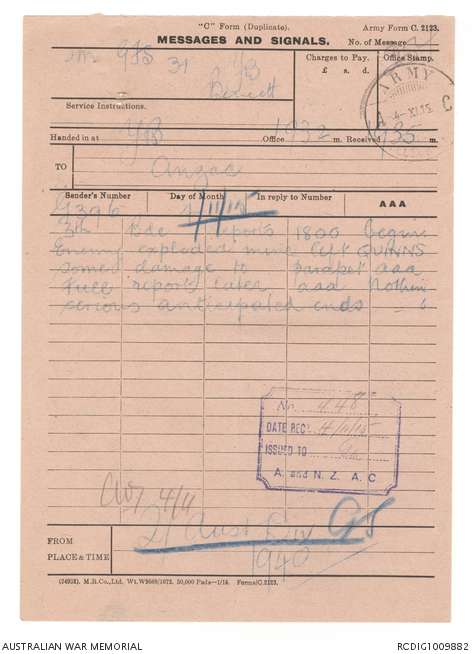 "C" Form (Duplicate). Army Form C. 2123.
MESSAGES AND SIGNALS. No. of Message
Charges to Pay. Office Stamp.
£ s. d.
915 31
ARMY
4-XI.15
A C
Service Instructions.
YB
Handed in at YB Office 1932 m. Received 1935 m.
TO Anzac
Sender's Number Day of Month In reply to Number AAA
G396 4/11/15
3th Bde reports 1800 begins
Enemy exploded mine left QUINNS
some damage to parapet aaa
Full report later aaa Nothing
serious anticipated ends
No. 448
DATE REC'D 4/11/15
ISSUED TO
A. and N. Z. A. C
4/11
2/ Aust Div GS
FROM
PLACE & TIME 1940
(24938). M.R.Co.,Ltd. Wt.W9669/1672. 50,000 Pads—1/15. Forms/C.2123.
AUSTRALIAN WAR MEMORIAL RCDIG1009882